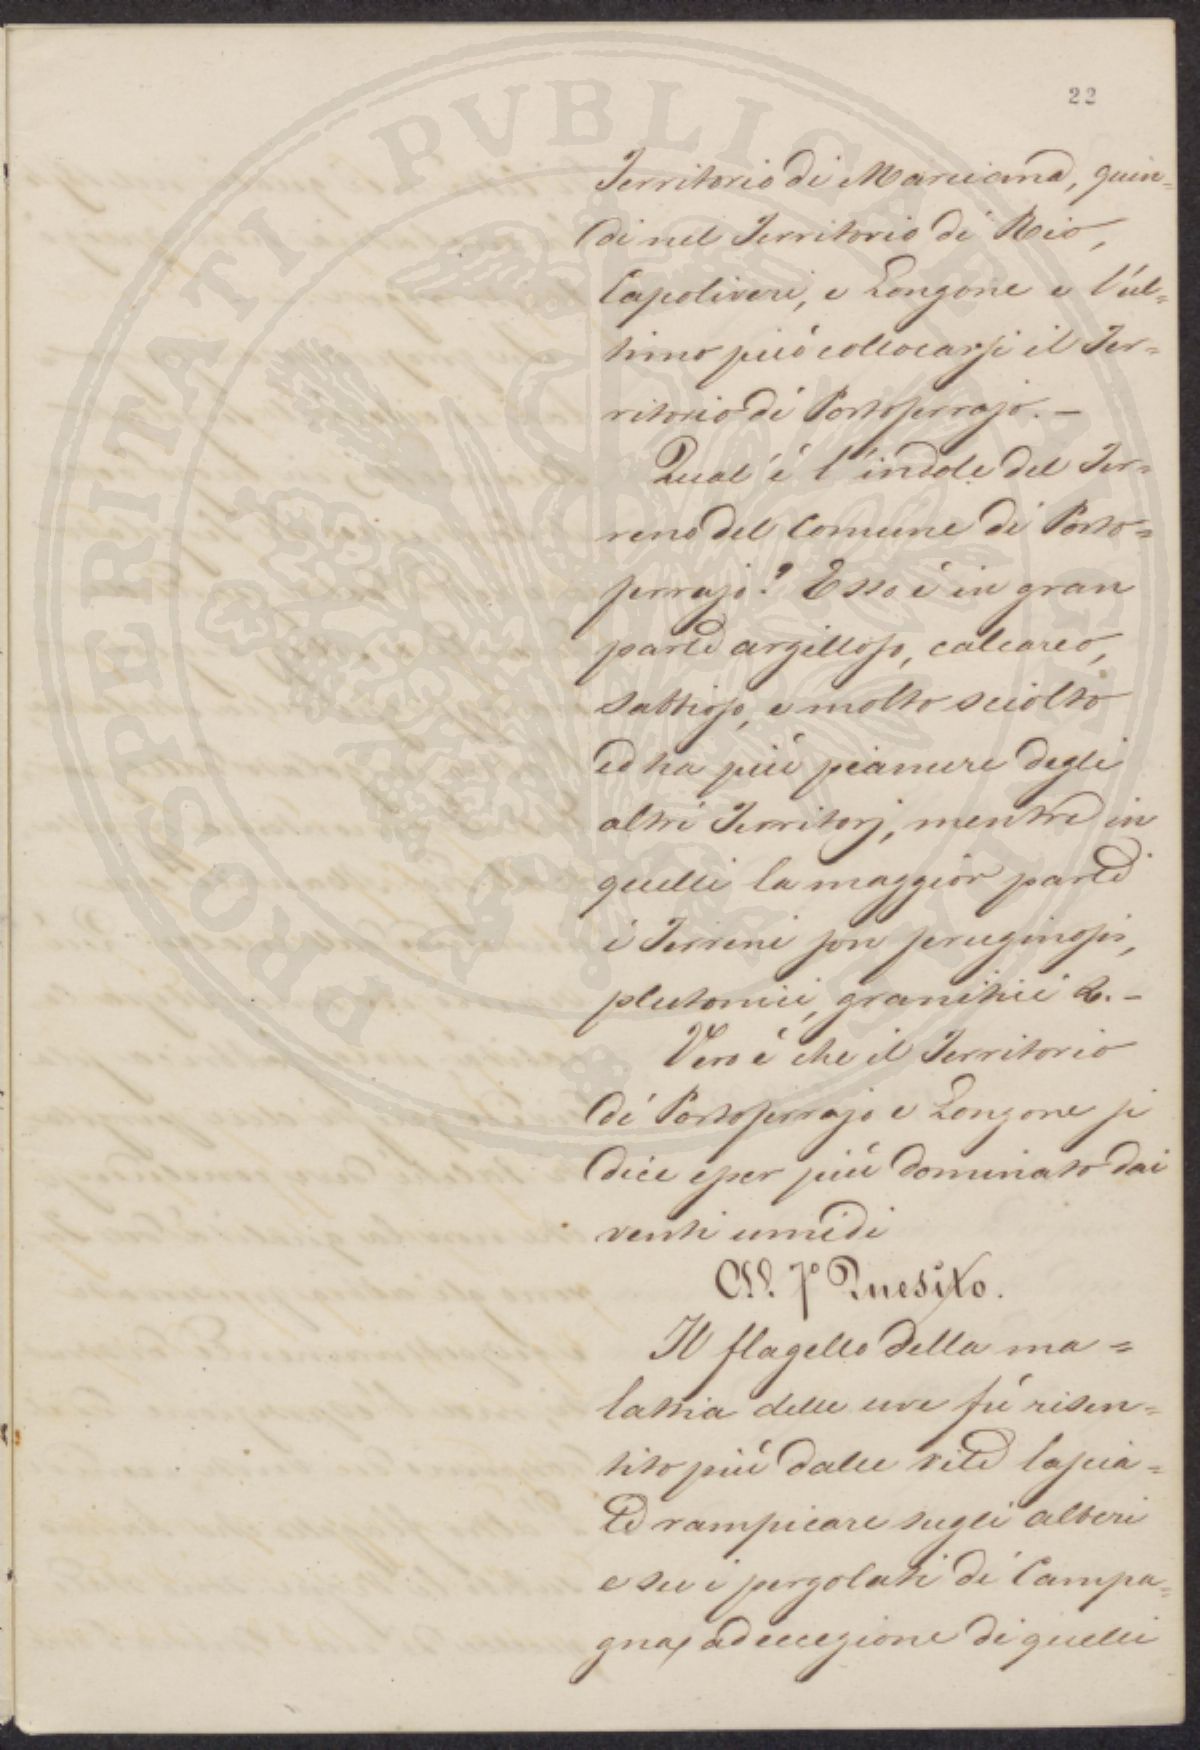 22
Territorio di Marciana, quin=
di nel Territorio di Rio,
Capoliveri, e Longone e l'ul=
timo può collocarsi il Ter=
ritorio di Portoferrajo. –
Qual'é l'indole del Ter=
reno del Comune di Porto=
ferrajo? Esso é in gran
parte argilloso, calcareo,
sabbioso, e molto sciolto
ed ha più pianure degli
altri Territorj, mentre in
quelli la maggior parte
i Terreni son feruginosi,
plutonici, granitici &. –
Vero é che il Territorio
di Portoferrajo e Longone si
dice esser più dominato dai
venti umidi
Al 7º Quesito.
Il flagello della ma=
lattia delle uve fú risen=
tito più dalle vite lascia=
te rampicare sugli alberi
e su i pergolati di Campa=
gna, ad eccezione di quelli
PROSPERITATI PVBLICAE AVGENDAE